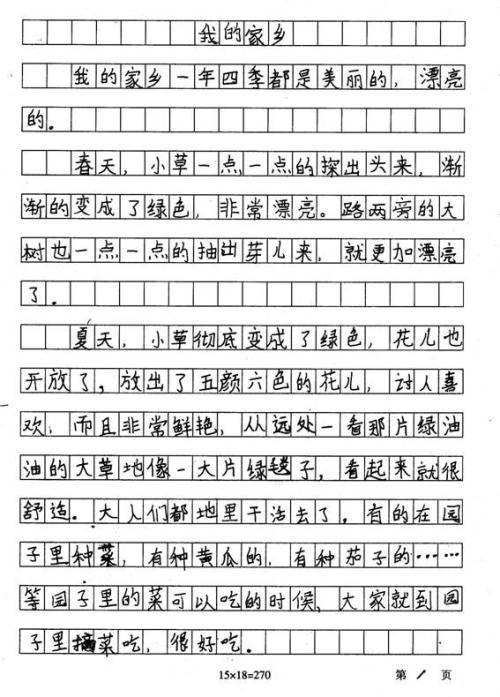 我的家乡
我的家乡一年四季都是美丽的，漂亮
的。
春天，小草一点一点的探出头来，渐
渐的变成了绿色，非常漂亮。路两旁的大
树也一点一点的抽出芽儿来，就更加漂亮
了。
夏天，小草彻底变成了绿色，花儿也
开放了，放出了五颜六色的花儿，讨人喜
欢，而且非常鲜艳，从远处一看那片绿油
油的大草地像一大片绿毯子，看起来就很
舒适。大人们都地里干活去了，有的在园
子里种菜，有种黄瓜的，有种茄子的……
等园子里的菜可以吃的时候，大家就到园
子里摘菜吃，很好吃。
15×18=270 第1页